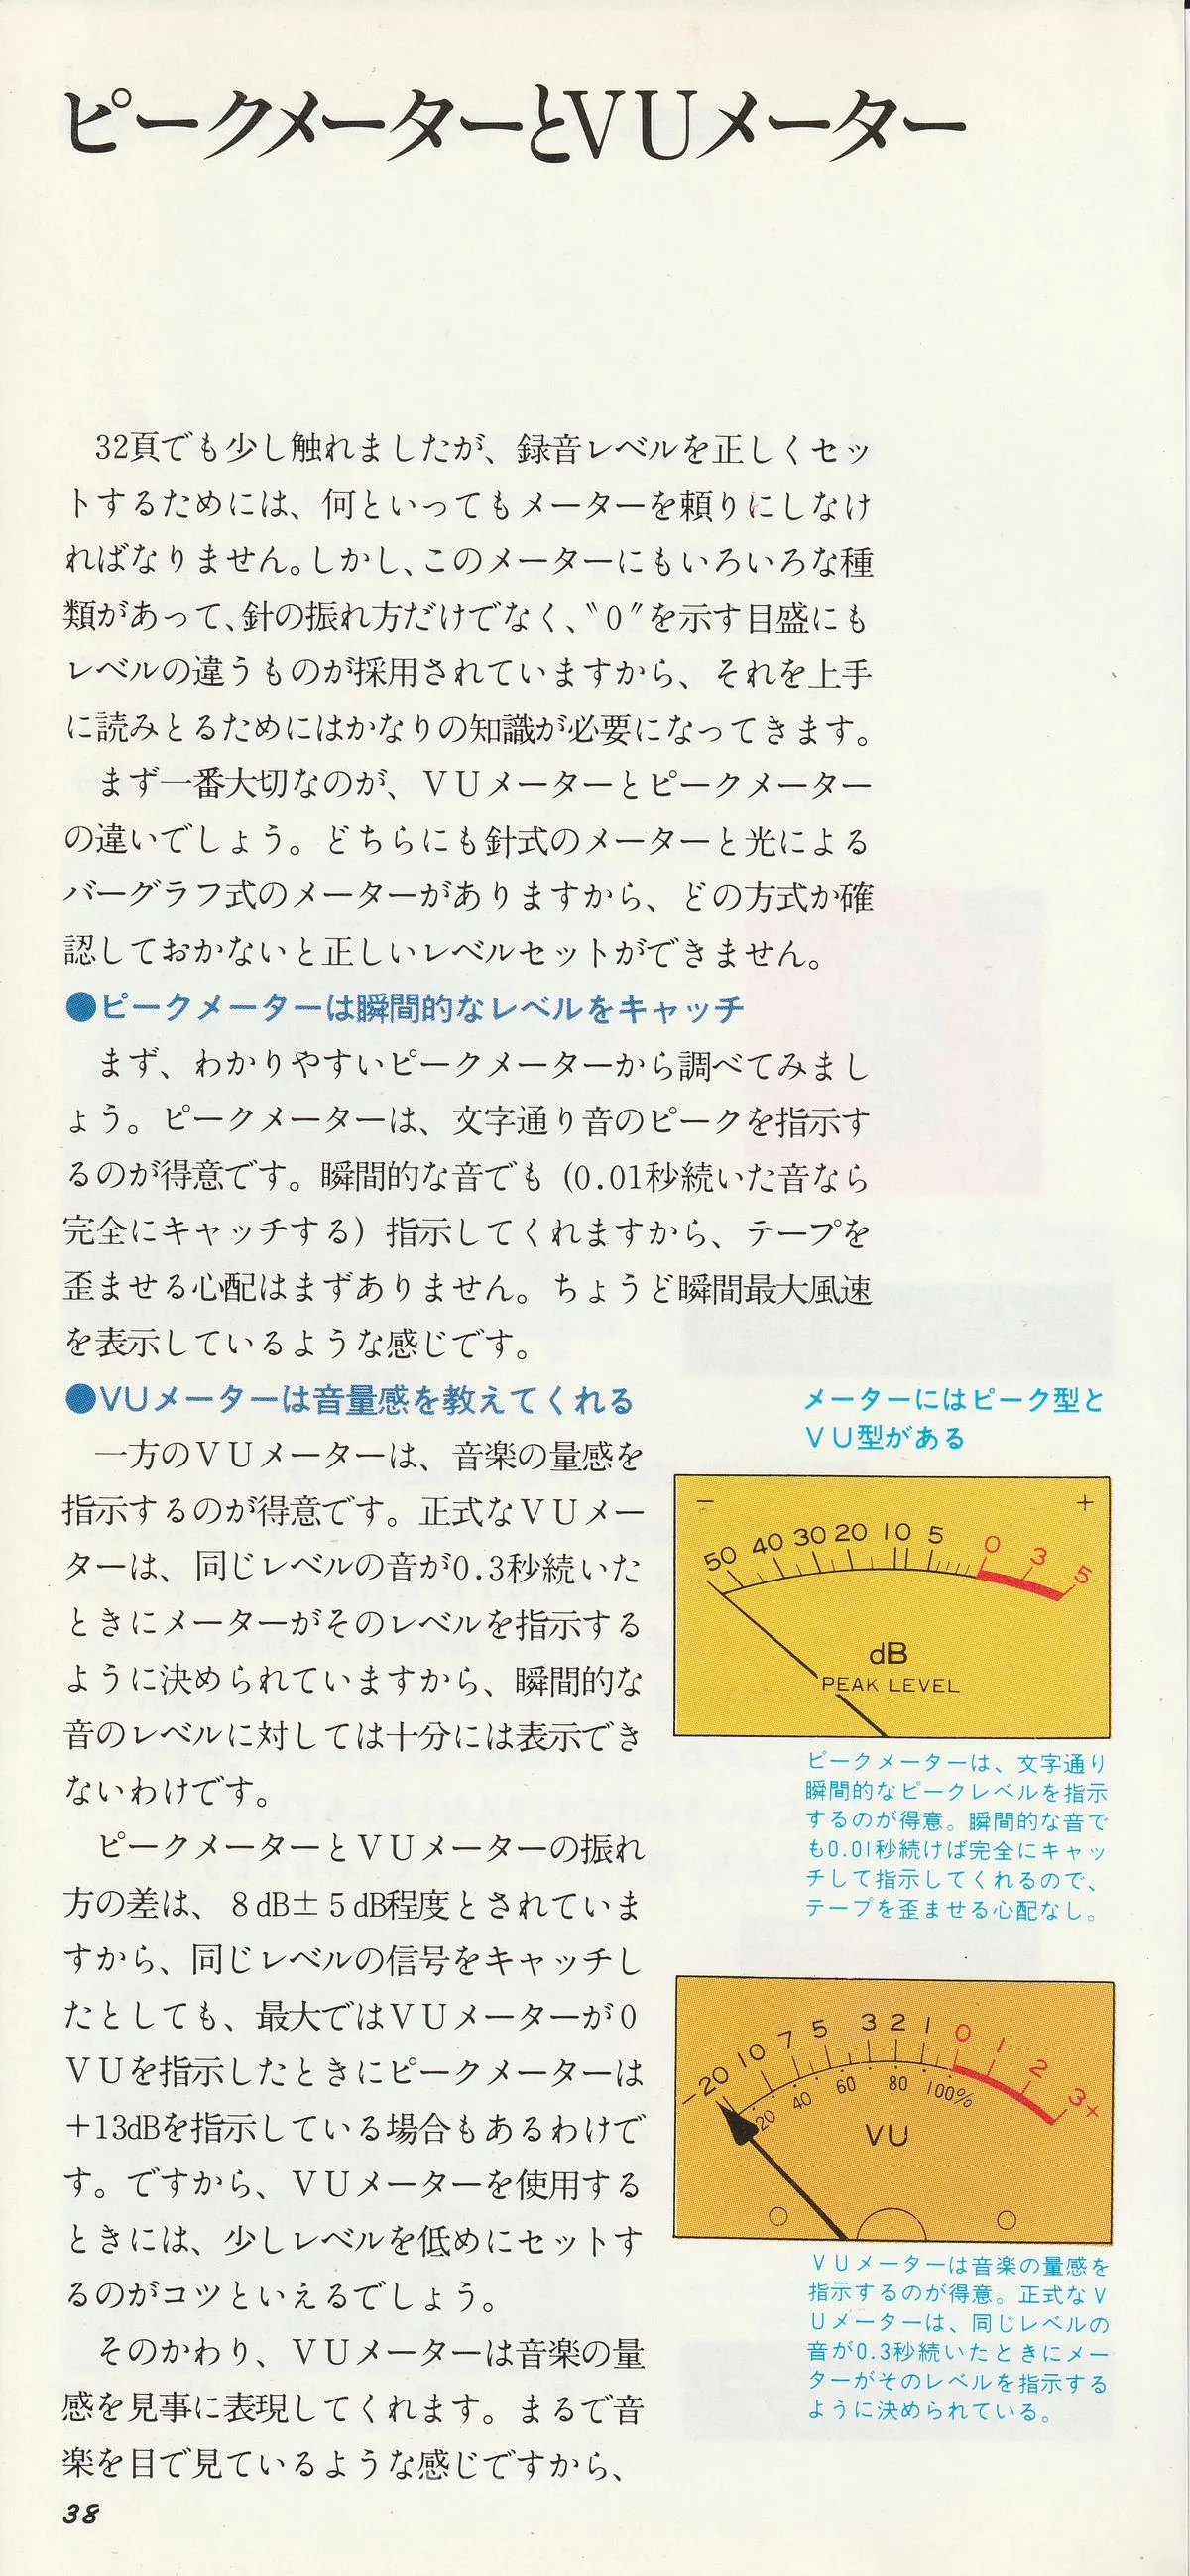 ピークメーターとVUメーター
32頁でも少し触れましたが、録音レベルを正しくセッ
トするためには、何といってもメーターを頼りにしなけ
ればなりません。しかし、このメーターにもいろいろな種
類があって、針の振れ方だけでなく、〝0〟を示す目盛にも
レベルの違うものが採用されていますから、それを上手
に読みとるためにはかなりの知識が必要になってきます。
まず一番大切なのが、VUメーターとピークメーター
の違いでしょう。どちらにも針式のメーターと光による
バーグラフ式のメーターがありますから、どの方式か確
認しておかないと正しいレベルセットができません。
●ピークメーターは瞬間的なレベルをキャッチ
まず、わかりやすいピークメーターから調べてみまし
ょう。ピークメーターは、文字通り音のピークを指示す
るのが得意です。瞬間的な音でも(0.01秒続いた音なら
完全にキャッチする)指示してくれますから、テープを
歪ませる心配はまずありません。ちょうど瞬間最大風速
を表示しているような感じです。
●VUメーターは音量感を教えてくれる
一方のVUメーターは、音楽の量感を
指示するのが得意です。正式なVUメー
ターは、同じレベルの音が0.3秒続いた
ときにメーターがそのレベルを指示する
ように決められていますから、瞬間的な
音のレベルに対しては十分には表示でき
ないわけです。
ピークメーターとVUメーターの振れ
方の差は、8dB±5dB程度とされていま
すから、同じレベルの信号をキャッチし
たとしても、最大ではVUメーターが0
VUを指示したときにピークメーターは
+13dBを指示している場合もあるわけで
す。ですから、VUメーターを使用する
ときには、少しレベルを低めにセットす
るのがコツといえるでしょう。
そのかわり、VUメーターは音楽の量
感を見事に表現してくれます。まるで音
楽を目で見ているような感じですから、
メーターにはピーク型と
VU型がある
− +
50 40 30 20 10 5 0 3 5
dB
PEAK LEVEL
ピークメーターは、文字通り
瞬間的なピークレベルを指示
するのが得意。瞬間的な音で
も0.01秒続けば完全にキャッ
チして指示してくれるので、
テープを歪ませる心配なし。
−20 10 7 5 3 2 1 0 1 2 3+
20 40 60 80 100%
VU
VUメーターは音楽の量感を
指示するのが得意。正式なV
Uメーターは、同じレベルの
音が0.3秒続いたときにメー
ターがそのレベルを指示する
ように決められている。
38